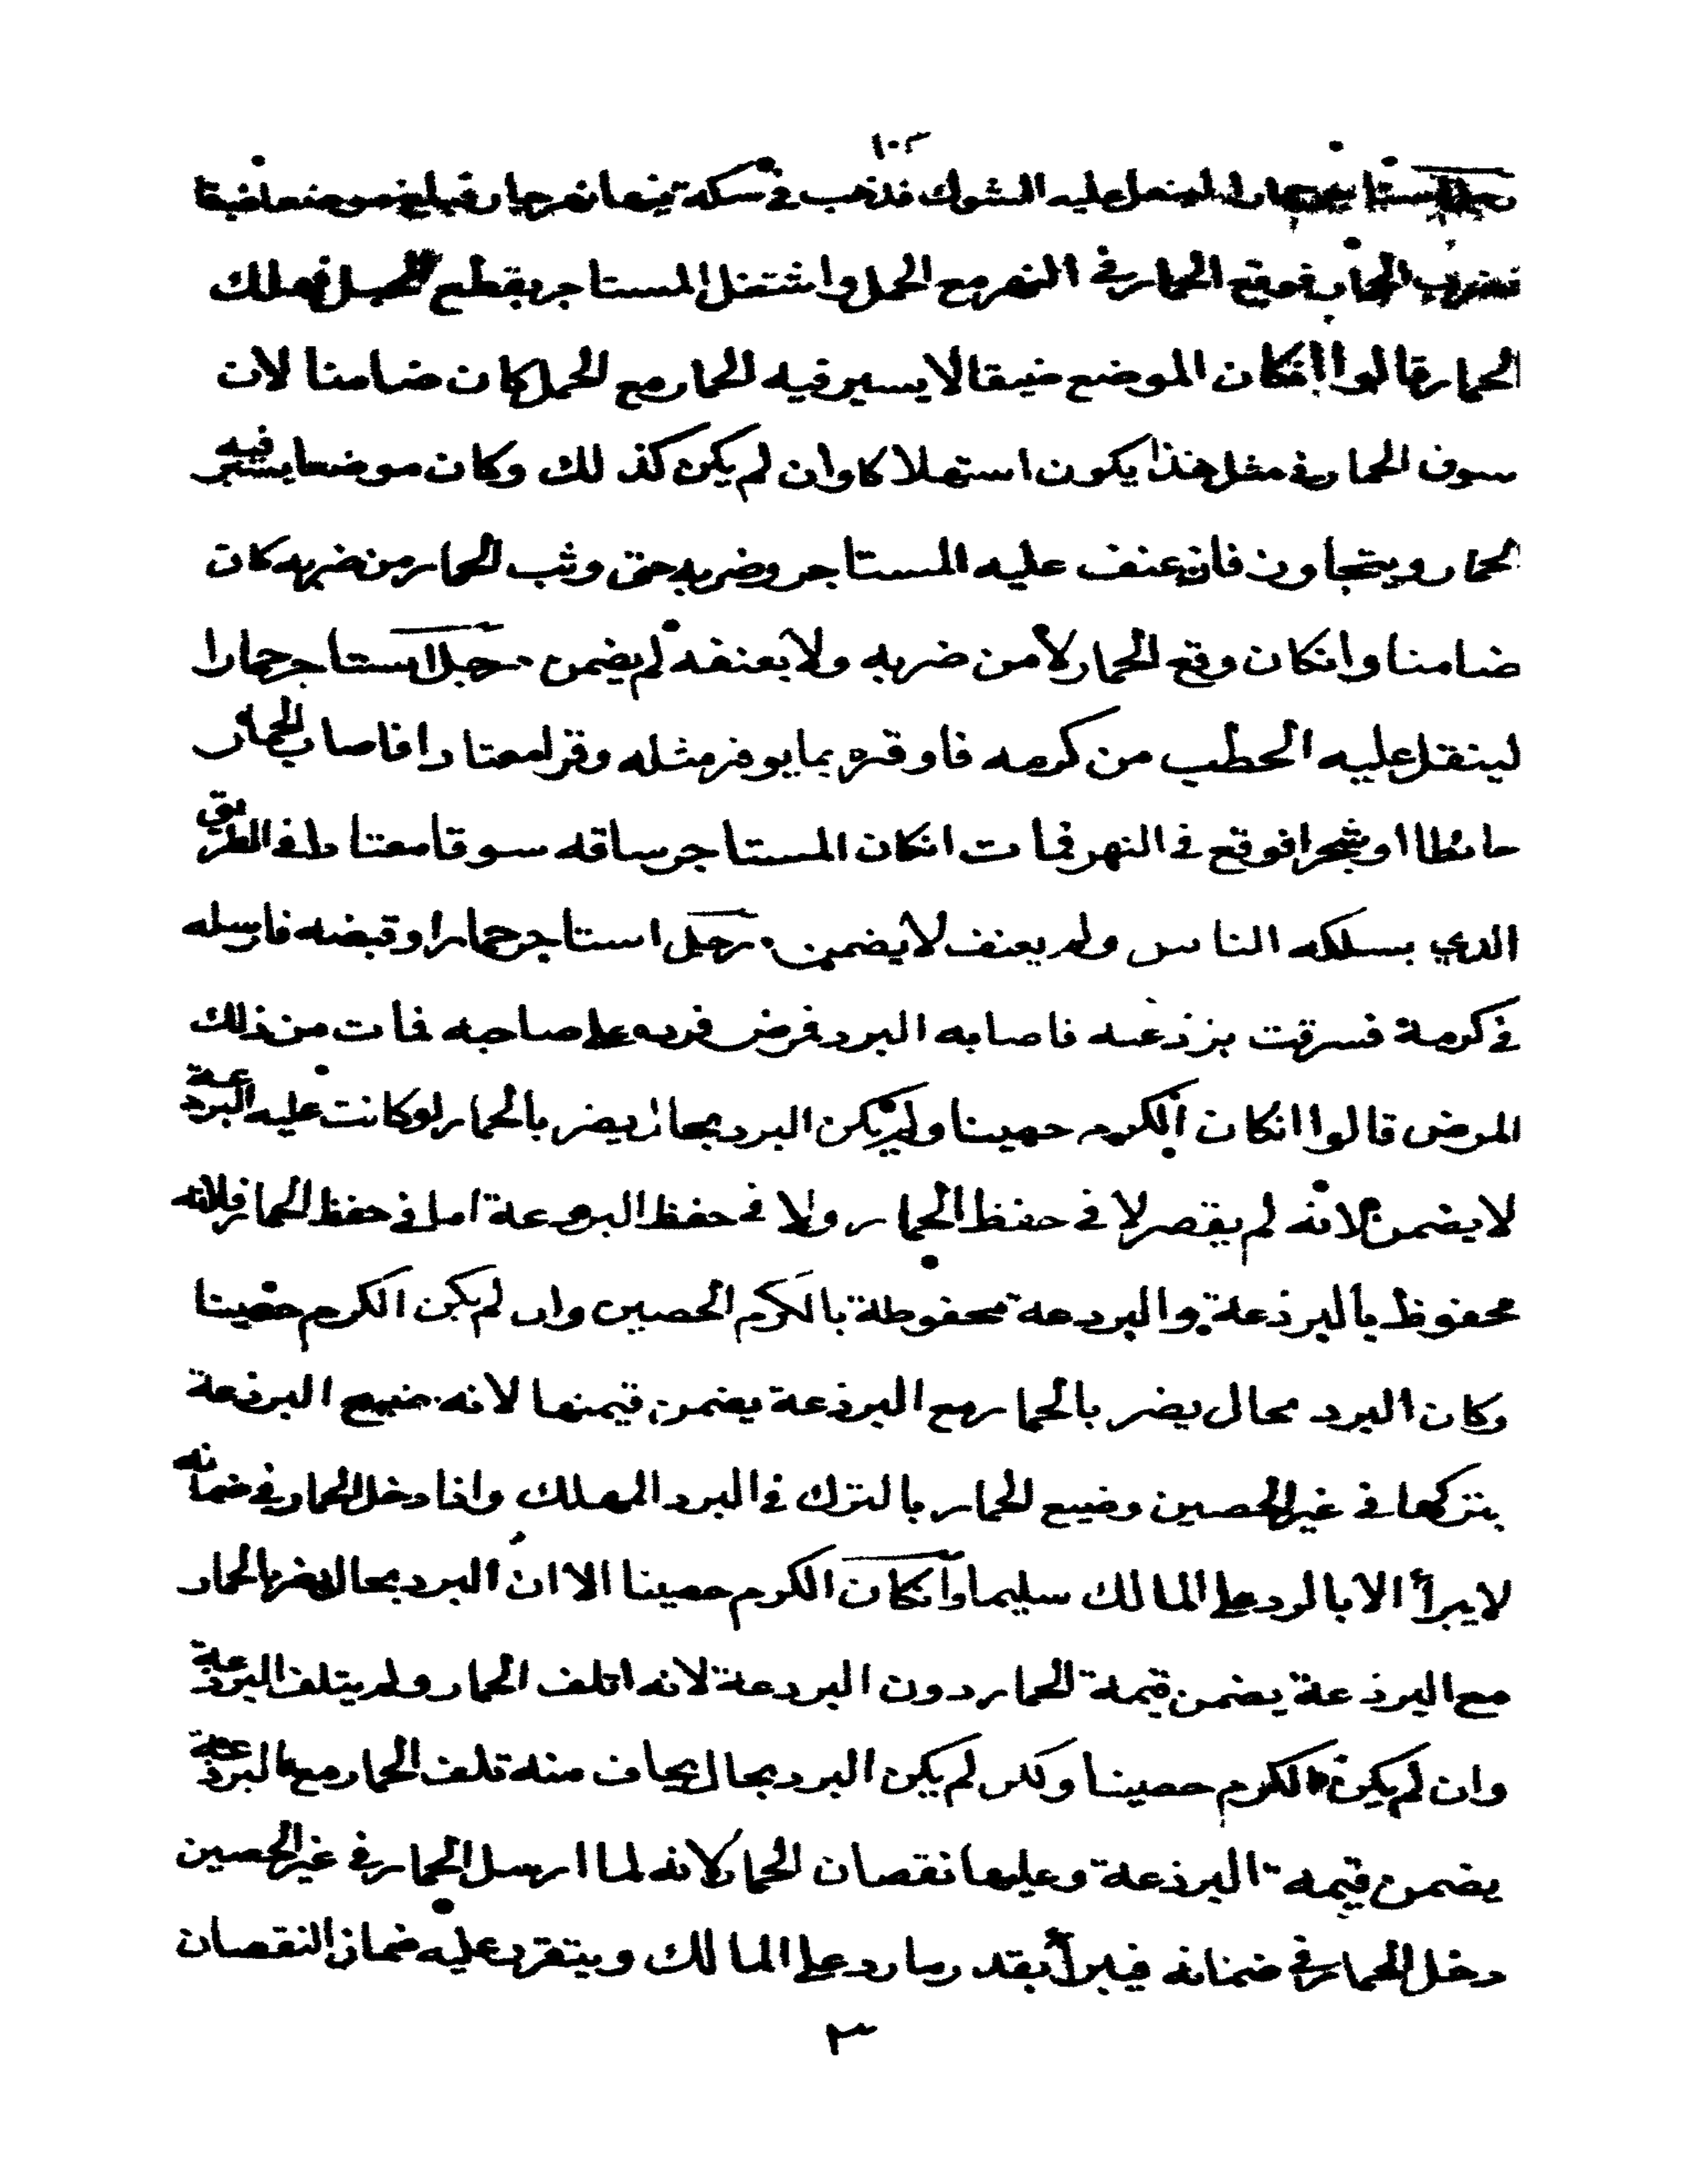 رجل استاجر حمارا لينقل عليه الشوك فذهب في سكة فيها نهر جار فبلغ موضعا ضيقا
فضرب الحمار فوقع الحمار في النهر مع الحمل واشتغل المستاجر بقطع الحبل فهلك
الحمار قالوا انكان الموضع ضيقا لا يسير فيه الحمار مع الحمل كان ضامنا لان
سوف الحمار في مثل هذا يكون استهلاكا وان لم يكن كذلك وكان موضعا يسير فيه
الحمار ويتجاوز فان عنف عليه المستاجر وضربه حتى وثب الحمار من ضربه كان
ضامنا وانكان وقع الحمار لا من ضربه ولا بعنفه لم يضمن رجل استاجر حمارا
لينقل عليه الحطب من كرمه فاوقره بما يوقر مثله وقرا معتادا فاصاب الحمار
حائطا او شجرا فوقع في النهر فمات انكان المستاجر ساقه سوقا معتادا في الطريق
الذي يسلكه الناس ولم يعنف لا يضمن رجل استاجر حمارا وقبضه فارسله
في كرمة فسرقت بزذعته فاصابه البرد فمرض فرده على صاحبه فمات من ذلك
المرض قالوا انكان الكرم حصينا ولم يكن البرد بحال يضر بالحمار لو كانت عليه البردعة
لا يضمن لانه لم يقصر لا في حفظ الحمار ولا في حفظ البردعة اما في حفظ الحمار فلانه
محفوظ بالبرذعة والبردعة محفوظة بالكرم الحصين وان لم يكن الكرم حصينا
وكان البرد بحال يضر بالحمار مع البرذعة يضمن قيمتها لانه ضيع البرذعة
بتركها في غير الحصين وضيع الحمار بالترك في البرد المهلك واذا دخل الحمار في ضمانه
لا يبرأ الا بالرد على المالك سليما وانكان الكرم حصينا الا ان البرد بحال يضر بالحمار
مع البرذعة يضمن قيمة الحمار دون البردعة لانه اتلف الحمار ولم يتلف البردعة
وان لم يكن الكرم حصينا ولكن لم يكن البرد بحال يخاف منه تلف الحمار مع البردعة
يضمن قيمة البرذعة وعليها نقصان الحمار لانه لما ارسل الحمار في غير الحصين
دخل الحمار في ضمانه فيبرأ بقدر ما رد على المالك ويتقرر عليه ضمان النقصان